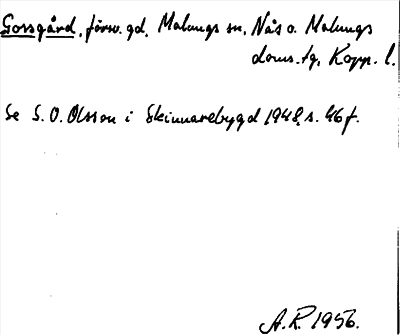 Gossgård, försv. gd, Malungs sn, Nås o. Malungs
doms. tg, Kopp. l.
Se S. O. Olsson i Skinnarebygd 1948, s. 46 f.
A. R. 1956.